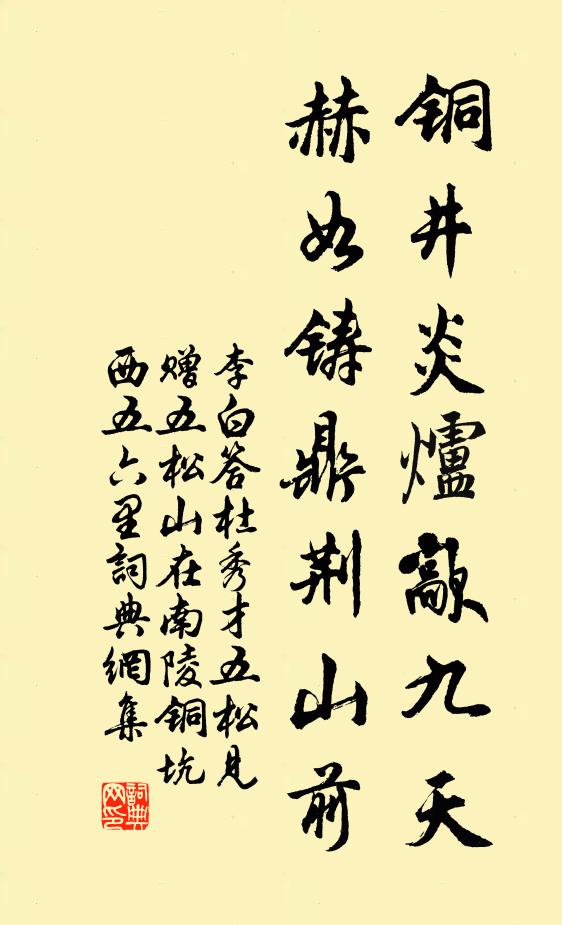 铜井炎爐歊九天
赫如铸鼎荆山前
李白答杜秀才五松见
赠五松山在南陵铜坑
西五六里詞典網集
詞典网印